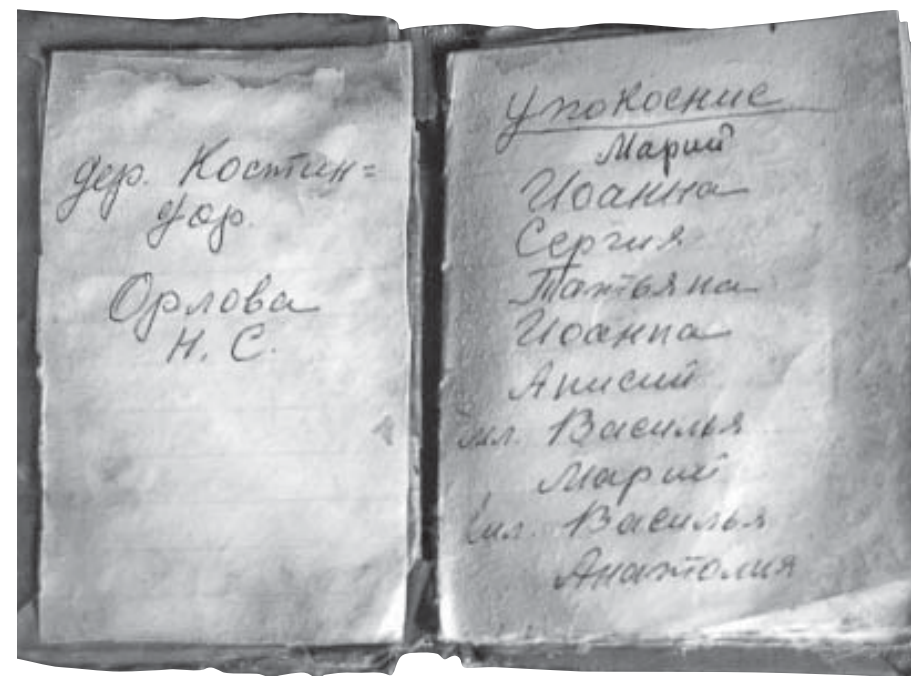 дер. Костин=
дор.
Орлова
Н. С.
Упокоение
Марии
Иоанна
Сергия
Татьяна
Иоанна
Анисий
Василья
Марий
Василья
Анатолия